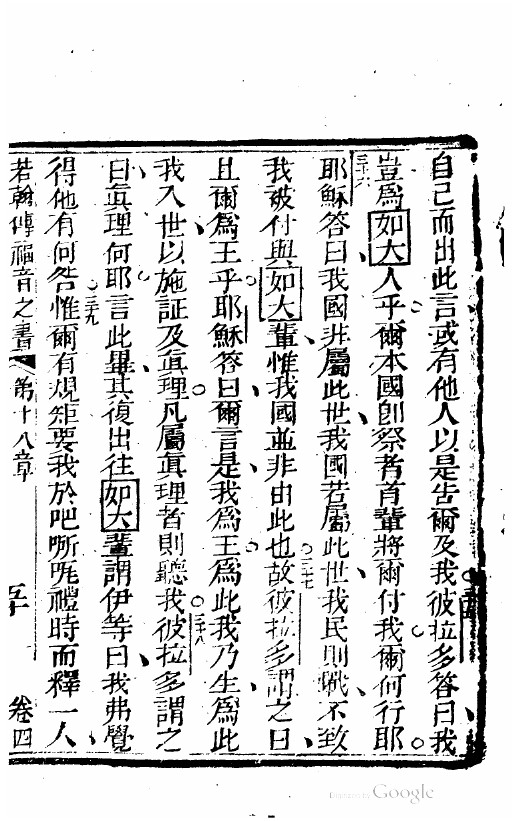 自己而出此言或有他人以是吿爾及我彼拉多答曰我
豈爲如大人乎爾本國創祭者首輩將爾付我爾何行耶
三十六
耶穌答曰我國非屬此世我國若屬此世我民則戰不致
我被付與如大輩惟我國並非由此也故彼拉多謂之曰
三十七
且爾爲王乎耶穌答曰爾言是我爲王爲此我乃生爲此
我入世以施証及眞理凡屬眞理者則聽我彼拉多謂之
三十八
曰眞理何耶言此畢其復出往如大輩謂伊等曰我弗覺
得他有何咎惟爾有規矩要我於吧㗭咓禮時而釋一人
三十九
若翰傳福音之書 第十八章 五十 卷四
Digitized by Google